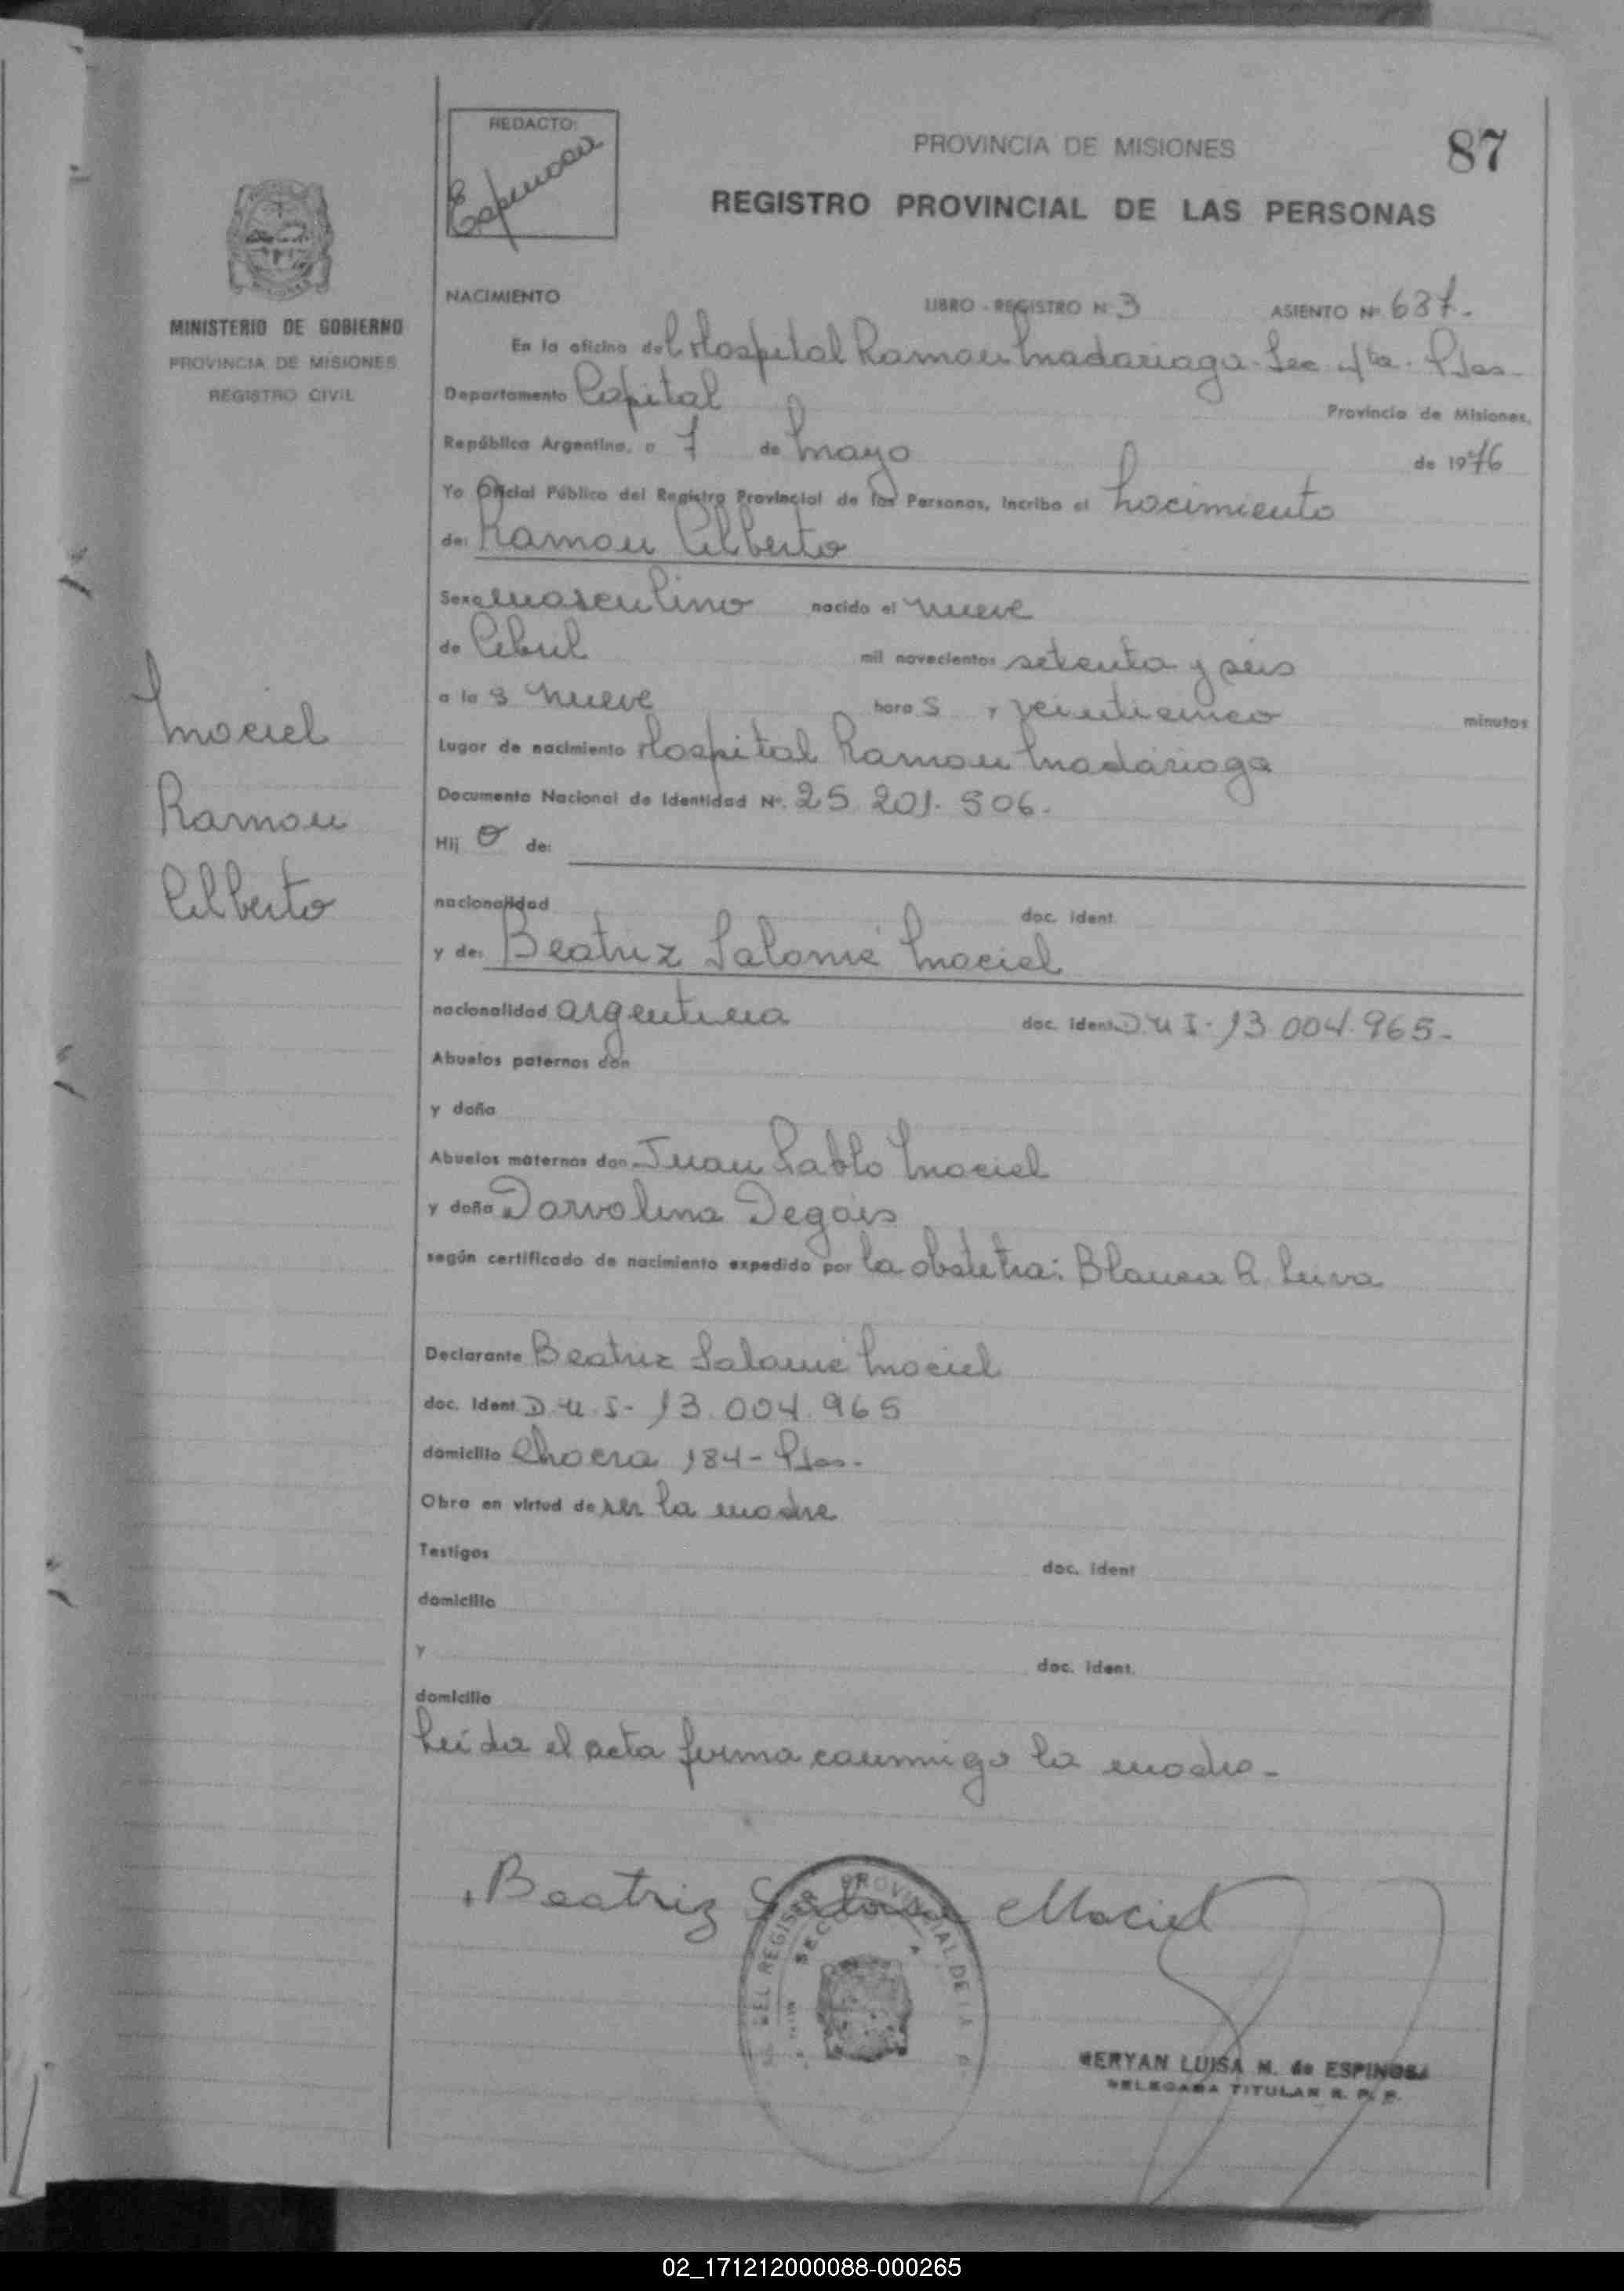 REDACTO:
Espinosa
PROVINCIA DE MISIONES
87
REGISTRO PROVINCIAL DE LAS PERSONAS
MINISTERIO DE GOBIERNO
PROVINCIA DE MISIONES
REGISTRO CIVIL
NACIMIENTO LIBRO - REGISTRO Nº 3 ASIENTO Nº 637.
En la oficina del Hospital Ramon Madariaga - Sec 4ta. Pdas-
Departamento Capital Provincia de Misiones,
República Argentina, a 7 de Mayo de 1976
Yo Oficial Público del Registro Provincial de las Personas, incribo el Nacimiento
de: Ramon Alberto
Sexo masculino nacido el Nueve
de Abril mil novecientos setenta y seis
a la s Nueve hora s y veinticinco minutos
Lugar de nacimiento Hospital Ramon Madariaga
Documento Nacional de Identidad Nº. 25.201.506.
Hij o de:
nacionalidad doc. ident.
y de: Beatriz Salomé Maciel
nacionalidad argentina doc. ident. D.N.I. 13.004.965-
Abuelos paternos don
y doña
Abuelos maternos don Juan Pablo Maciel
y doña Darvolina Degais
según certificado de nacimiento expedido por la obstetra: Blanca R. Leiva
Declarante Beatriz Salomé Maciel
doc. ident. D.N.I- 13.004.965
domicilio Chacra 184- Pdas-
Obra en virtud de ser la madre
Testigos doc. ident
domicilio
y doc. ident.
domicilio
Leída el acta firma conmigo la madre-
Maciel
Ramon
Alberto
Beatriz Salome Maciel
NERYAN LUISA M. de ESPINOSA
DELEGADA TITULAR R. P. P.
02_171212000088-000265